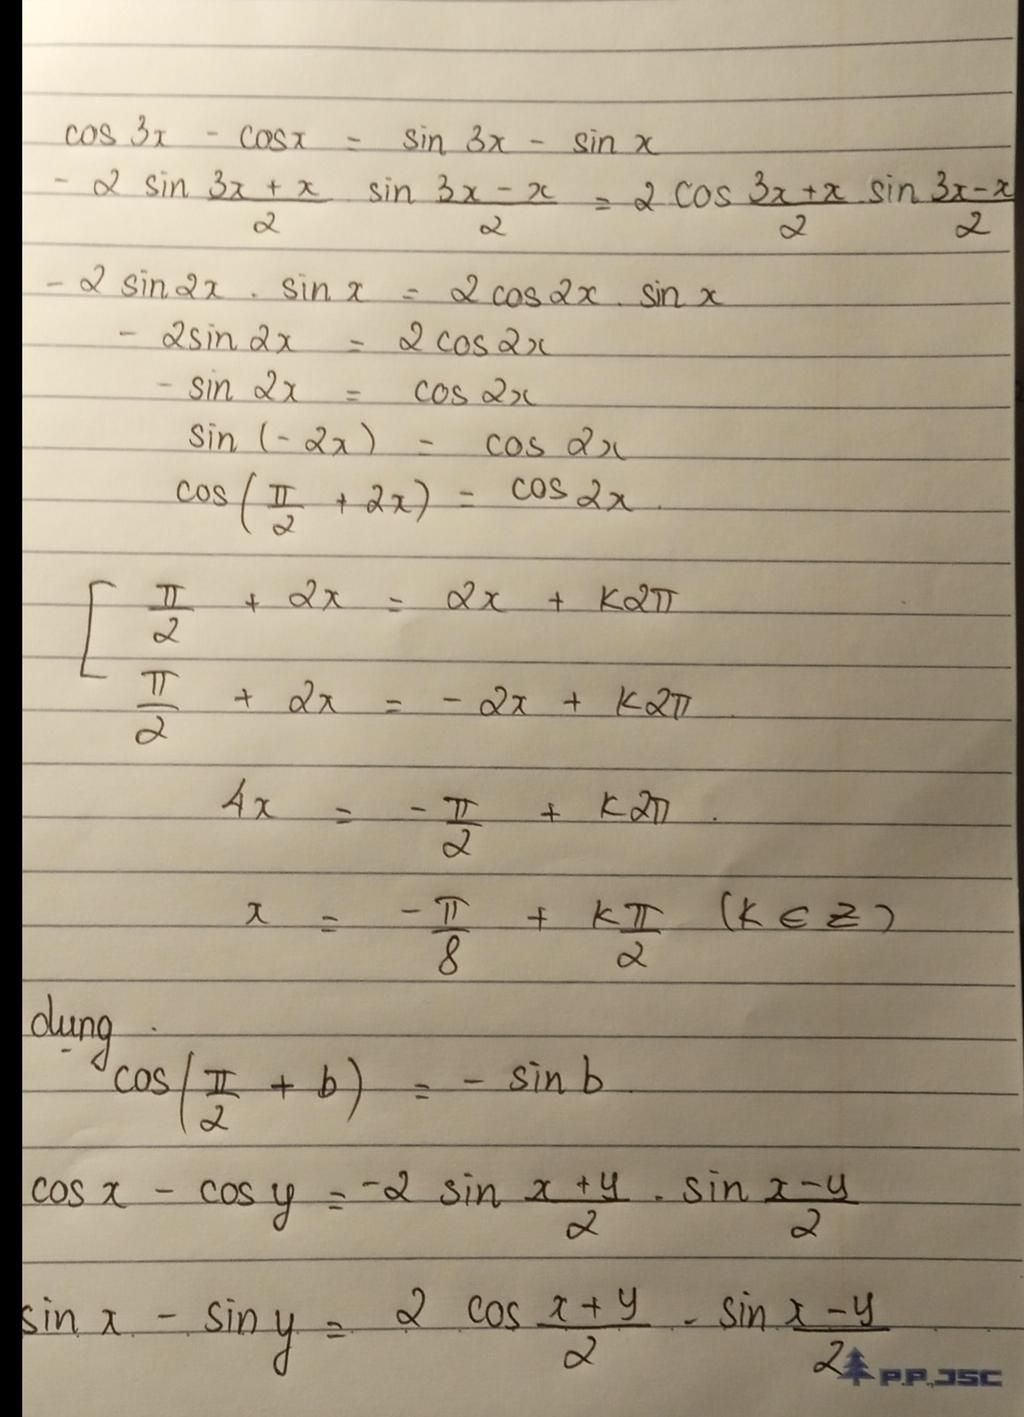 cos 3x - cosx = sin 3x - sin x
- 2 sin (3x + x)/2 sin (3x - x)/2 = 2 cos (3x+x)/2 sin (3x-x)/2
- 2 sin2x . sin x = 2 cos2x . sin x
- 2sin 2x = 2 cos2x
- sin 2x = cos 2x
sin (- 2x) = cos 2x
cos(π/2 + 2x) = cos 2x.
[ π/2 + 2x = 2x + k2π
π/2 + 2x = - 2x + k2π
4x = - π/2 + k2π.
x = - π/8 + kπ/2 (k ∈ Z)
dụng.
cos(π/2 + b) = - sin b
cos x - cos y = -2 sin (x+y)/2 . sin (x-y)/2
sin x - sin y = 2 cos (x+y)/2 . sin (x-y)/2
P.P.,JSC